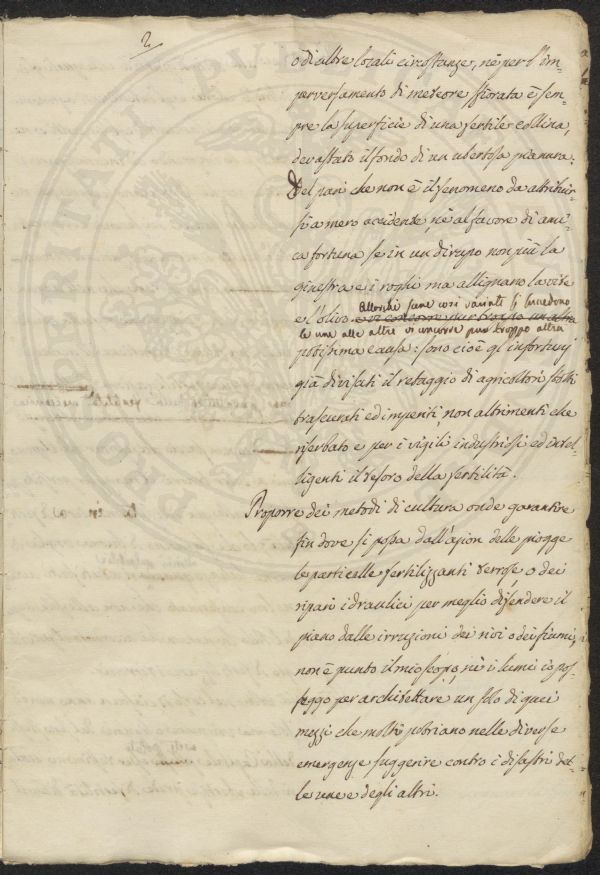 2
o di altre locali circostanze, nè per l'im-
perversamento di meteore sfiorata è sem-
pre la superficie di una fertile collina,
devastato il fondo di un ubertosa pianura.
Del pari che non è il fenomeno da attribuir-
si a mero accidente, nè al favore di ami-
ca fortuna se in un dirupo non più la
ginestra e i roghi ma allignano la vite
e l'olivo.
Allorchè scene così variate si succedono
le une alle altre vi concorre pur troppo altra
potissima causa: sono cioè gl'infortunj
già divisati il retaggio di agricoltori
trascurati ed imperiti, non altrimenti che
riserbato è per i vigili industriosi ed intel-
ligenti il tesoro della fertilità.
Proporre dei metodi di cultura onde garantire
fin dove si possa dall'azion delle piogge
le particelle fertilizzanti terrose, o dei
ripari idraulici per meglio difendere il
piano dalle irruzioni dei rivi o dei fiumi,
non è punto il mio scopo, nè i lumi io pos-
seggo per architettare un solo di quei
mezzi che molti potriano nelle diverse
emergenze suggerire contro i disastri del-
le une e degli altri.
PROSPERITATI PUBLICAE